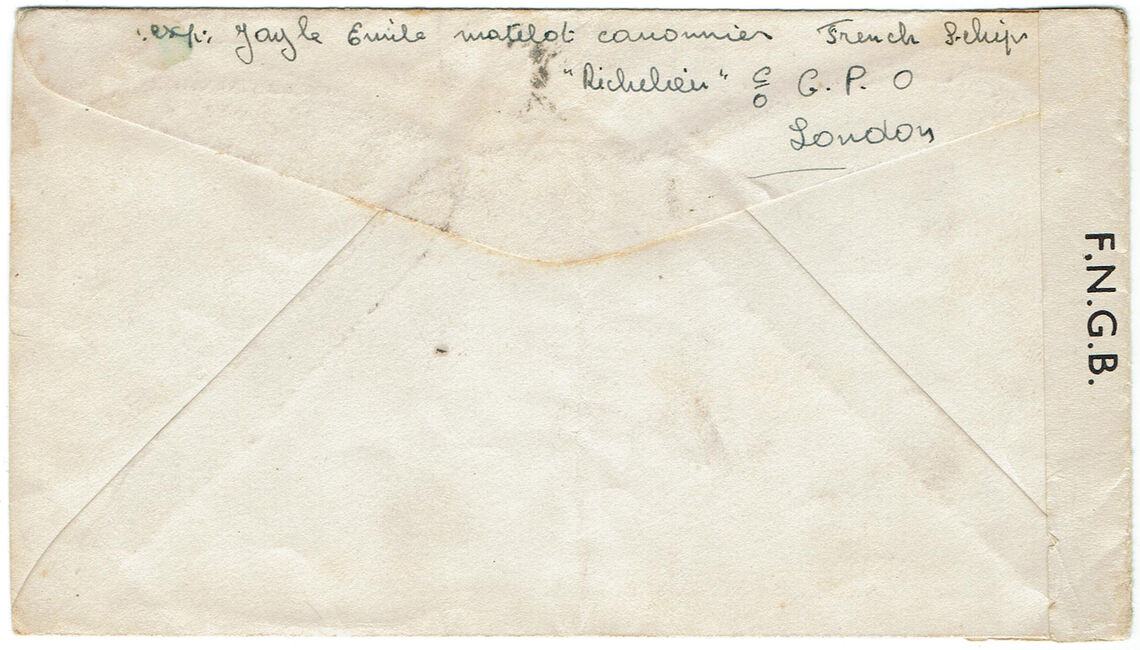 exp: Jayle Emile matelot canonnier French Schip
"Richelieu" c/o G. P. O
London
F.N.G.B.